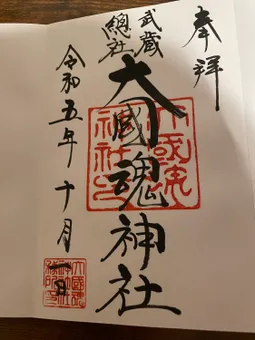 奉拝
武蔵
總社
大國魂神社
大國魂
神社印
令和五年十月一日